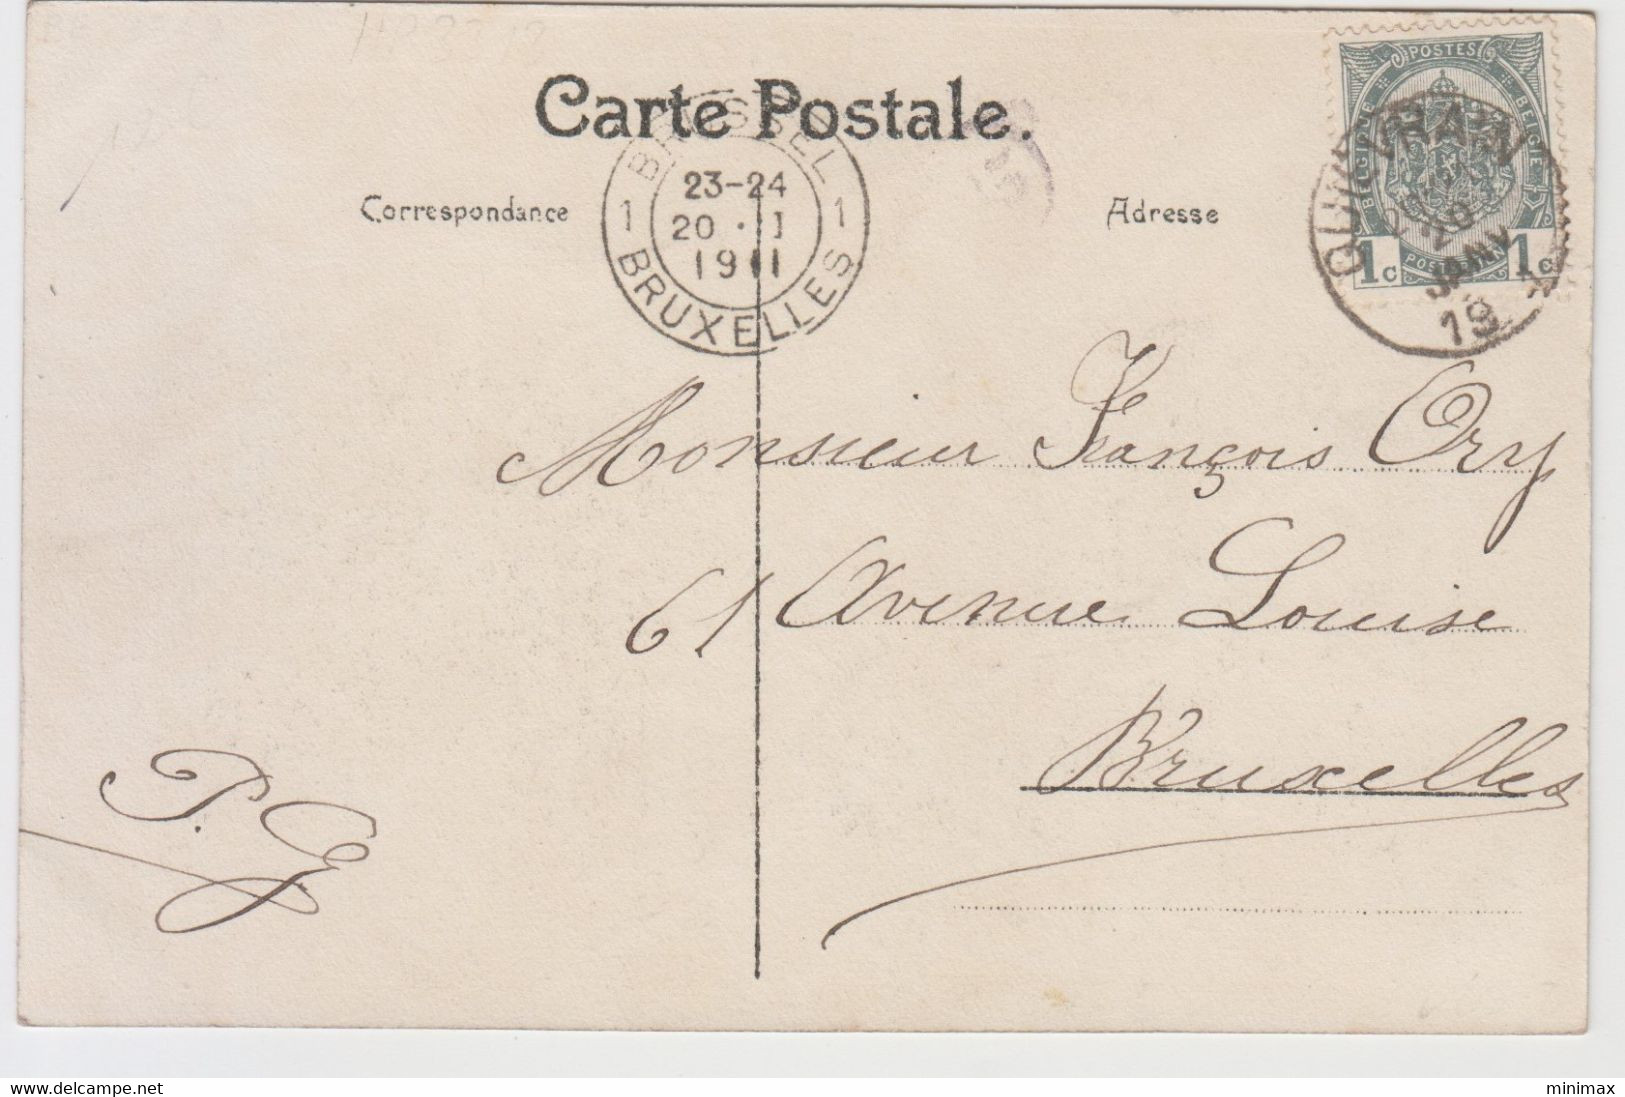 Carte Postale.
Correspondance
Adresse
BRUSSEL
1 23-24 1
20 · I
1911
BRUXELLES
POSTES
BELGIQUE BELGIE
1c 1c
QUIEVRAIN
20
JANV
19
Monsieur François Ory
61 Avenue Louise
Bruxelles
P. G
www.delcampe.net
minimax